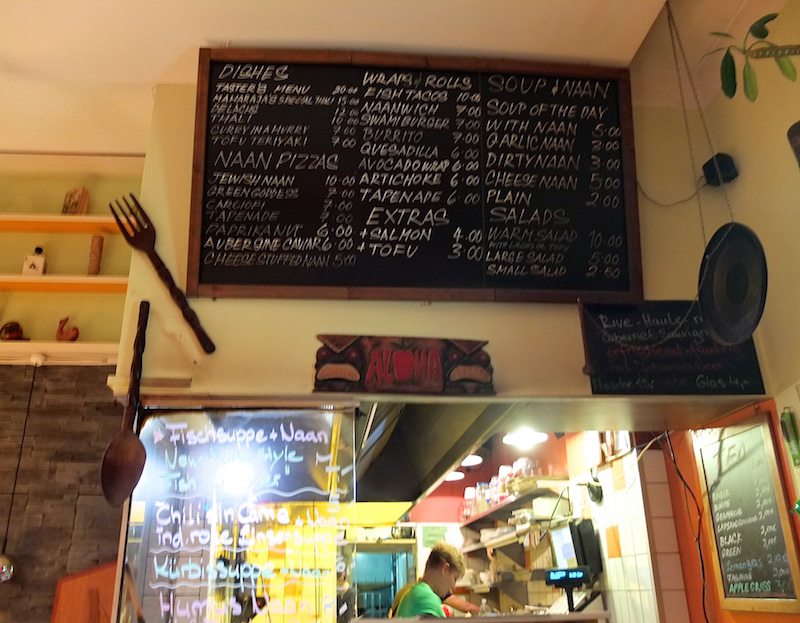 DISHES
TASTER'S MENU 20.00
MAHARAJA'S SPECIAL THALI 15.00
DELACHS 12.00
THALI 10.00
CURRY IN A HURRY 7.00
TOFU TERIYAKI 7.00
NAAN PIZZAS
JEWISH NAAN 10.00
GREEN GODDESS 7.00
CARCIOFI 7.00
TAPENADE 7.00
PAPRIKANUT 6.00
AUBERGINE CAVIAR 6.00
CHEESE STUFFED NAAN 5.00
WRAPS & ROLLS
FISH TACOS 10.00
NAANWICH 7.00
SWAMIBURGER 7.00
BURRITO 7.00
QUESADILLA 6.00
AVOCADO WRAP 6.00
ARTICHOKE 6.00
TAPENADE 6.00
EXTRAS
+ SALMON 4.00
+ TOFU 3.00
SOUP & NAAN
SOUP OF THE DAY
WITH NAAN 5.00
GARLIC NAAN 3.00
DIRTY NAAN 3.00
CHEESE NAAN 5.00
PLAIN 2.00
SALADS
WARM SALAD 10.00
WITH LACHS OR TOFU
LARGE SALAD 5.00
SMALL SALAD 2.50
ALOHA
Cabernet Sauvignon
Glas 4,-
Fischsuppe + Naan
style
Chili sin Carne + Naan
Kürbissuppe + Naan
Humus Naan
TEA
GINGER 2,00
WHITE 2,00
LAPSANG
BLACK 2,00
GREEN 2,00
Lemongras
JASMINE
APPLE GRASS